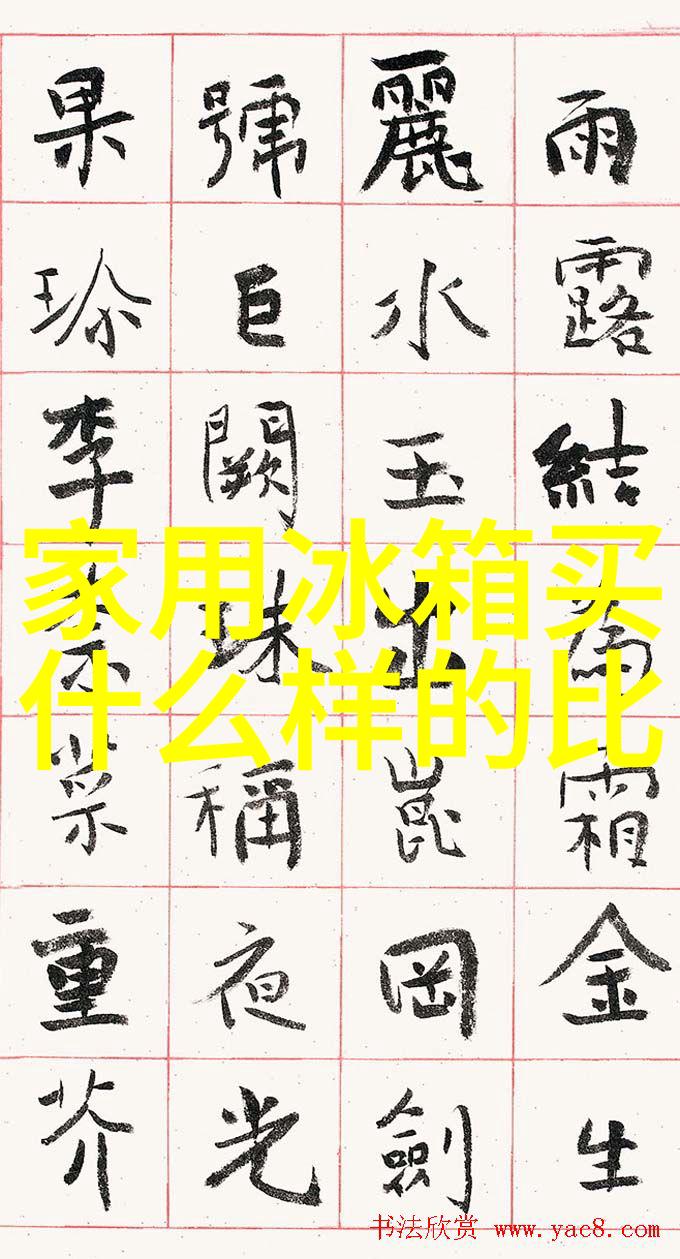 雨露結為霜金生
麗水玉出崑岡劍
號巨闕珠稱夜光
果珎李柰菜重芥
家用冰箱买
什么样的比
书法欣赏 www.yac8.com